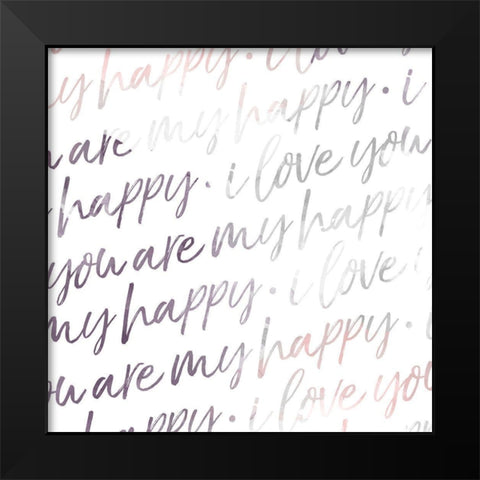 my happy • i love
you are my happy • i
happy • i love you
you are my happy
my happy • i love
you are my happy • i
happy • i love you